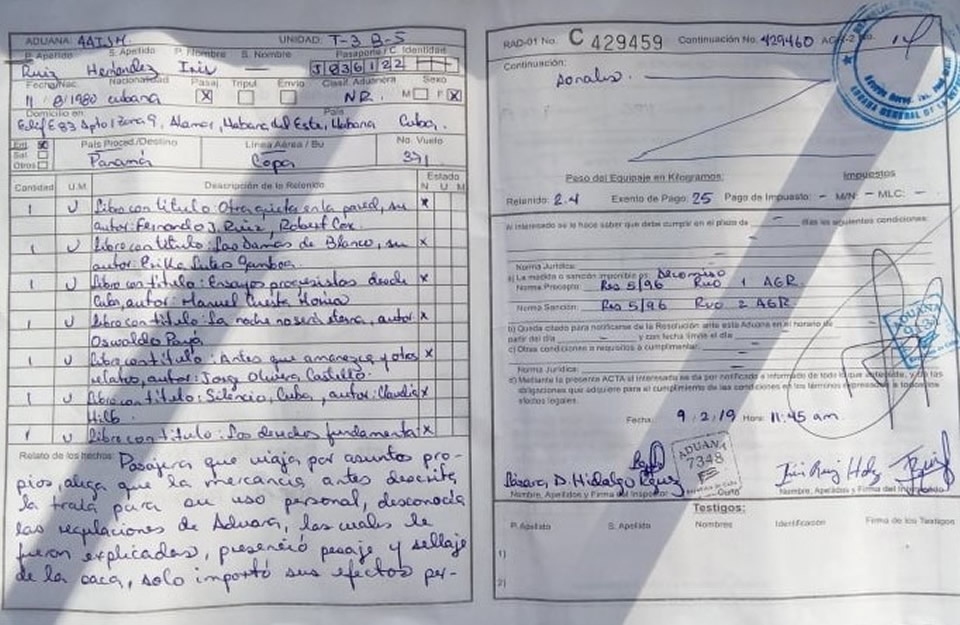 ADUANA: 44IJM. UNIDAD: T-3 B-5
P. Apellido S. Apellido P. Nombre S. Nombre Pasaporte / C. Identidad
Ruiz Hernández Iris — J036122
Fecha/Nac. Nacionalidad Pasaj. Tripul Envío Clasif. Aduanera Sexo
11 8/1980 cubana X NR. M F X
Domicilio en País
Edif E 83 Apto 1 zona 9, Alamar, Habana del Este, Habana Cuba.
Ent. X País Proced./Destino Línea Aérea / Bu No. Vuelo
Sal. Panamá Copa 371
Otros
Cantidad U.M Descripción de lo Retenido Estado
N U M
1 U Libro con titulo: Otra grieta en la pared, su x
autor: Fernando J. Ruiz, Robert Cox.
1 U Libro con titulo: Las Damas de Blanco, su x
autor: Erilka
1 U Libro con titulo: Ensayos progresistas desde x
Cuba, autor: Manuel Cuesta Morua
1 U Libro con titulo: La noche no será eterna, autor x
Oswaldo Payá
1 U Libro con titulo: Antes que amanezca y otros x
relatos, autor: Jorge Olivera Castillo.
1 U Libro con titulo: Silencio, Cuba, autor: Claudia x
Hilb.
1 U Libro con titulo: Los derechos fundamenta x
Relato de los hechos: Pasajera que viaja por asuntos pro-
pios, alega que la mercancia antes descrita
la traía para su uso personal, desconocía
las regulaciones de Aduana, las cuales le
fueron explicadas, presenció pesaje y sellaje
de la caca, solo importó sus efectos per-
RAD-01 No. C 429459 Continuación No. 429460
Continuación:
sonales.
Peso del Equipaje en Kilogramos: Impuestos
Retenido: 2.4 Exento de Pago: 25 Pago de Impuesto: — M/N: — MLC: —
Al interesado se le hace saber que debe cumplir en el plazo de — días las siguientes condiciones:
Norma Jurídica:
a) La medida o sanción imponible es: Decomiso
Norma Precepto: Res 5/96 Rvo 1 AGR.
Norma Sanción: Res 5/96 Rvo 2 AGR
b) Queda citado para notificarse de la Resolución ante esta Aduana en el horario de
partir del día — y con fecha límite el día
c) Otras condiciones o requisitos a cumplimentar:
Norma Jurídica:
d) Mediante la presente ACTA el interesado se da por notificado e informado de todo lo que antecede, y de las
obligaciones que adquiere para el cumplimiento de las condiciones en los términos expresados a todos los
efectos legales.
Fecha: 9/2/19 Hora: 11:45 am.
D. Hidalgo
ADUANA
7348
Iris Ruiz Hdez
Nombre, Apellidos y Firma del Inspector Cuño Nombre, Apellidos y Firma del
Testigos:
P. Apellido S. Apellido Nombres Identificación Firma de los Testigos
1)
2)